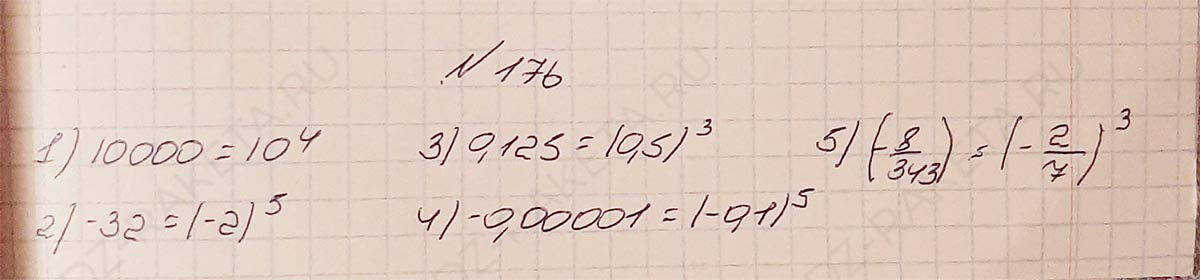 № 176
1) 10000 = 10⁴
2) -32 = (-2)⁵
3) 0,125 = (0,5)³
4) -0,00001 = (-0,1)⁵
5) (-8/343) = (-2/7)³